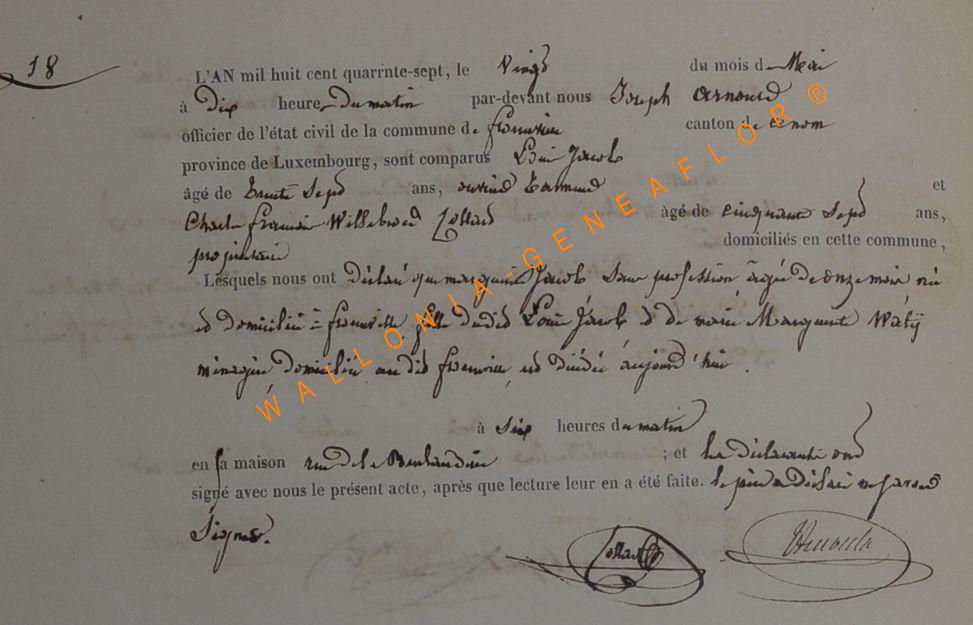 18
L'AN mil huit cent quarrinte-sept, le Vingt du mois de Mai
à Dix heures Du matin par-devant nous Joseph Arnould
officier de l'état civil de la commune de canton de
province de Luxembourg, sont comparus Louis Jacob
âgé de trente Sept ans, ouvrier et
Charles François Willebrord Collard âgé de cinquante Sept ans,
propriétaire domiciliés en cette commune,
Lesquels nous ont Déclaré que marguerite Jacob Sans profession âgée de onze mois née
et domiciliée à fille dudit Louis Jacob et de marie Marguerite
ménagère Domiciliée audit est décédée aujourd'hui.
à Six heures du matin
en sa maison rue de la ; et les déclarants ont
signé avec nous le présent acte, après que lecture leur en a été faite. le père a déclaré ne savoir
Signer.
Collard Arnould
WALLONIA-GENEAFLOR®